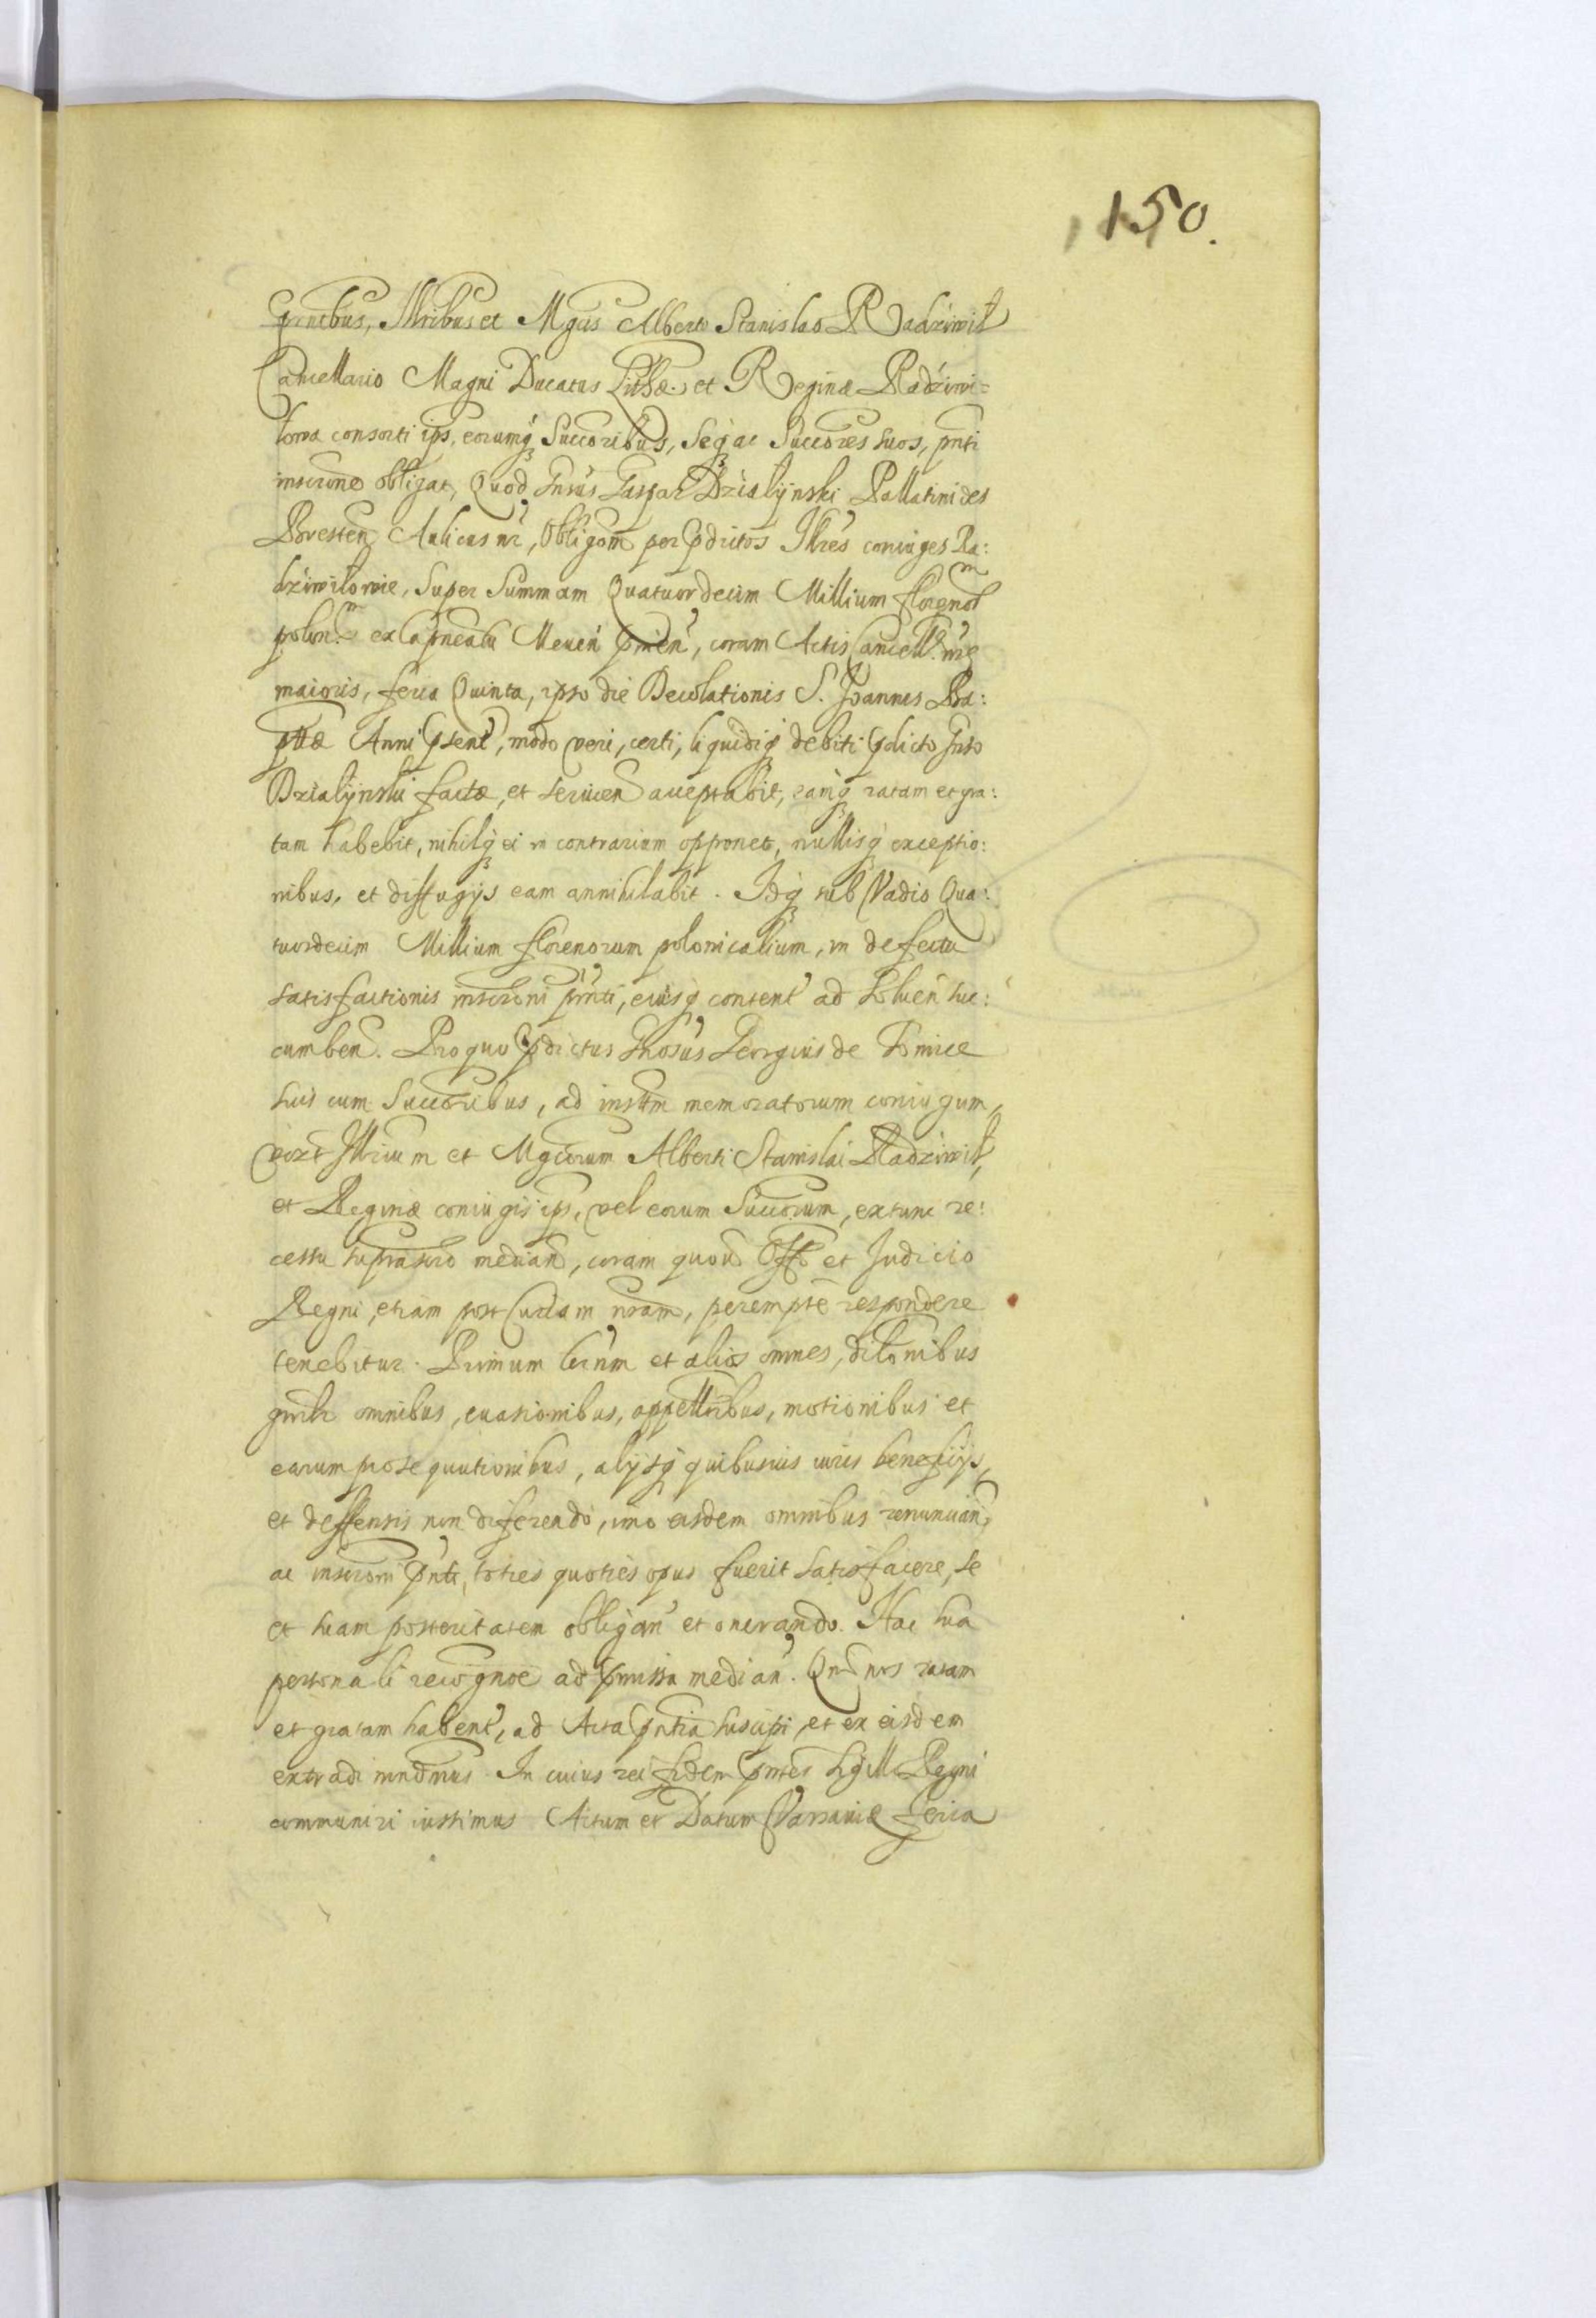 150.
prncbus, Illribus et Mgcis Alberto Stanislao Radziwił
Cancellario Magni Ducatus Lithae. et Reginae Radziwi=
łowa consorti ips, eorumq Succoribus, Seq ac Succores suos, pnti
inscrone obligat, Quod Gnsus Gaspar Dzialijnski Pallatinides
Bresten Aulicus nr, Obligom per pdictos Illres coniuges Ra:
dziwilowie, Super Summam Quatuordecim Millium florenor
polon. ex Capneatu Meuen, coram Actis Cancell. nre
maioris, feria Quinta, ipso die Decolationis S. Joannis Ba:
pttae Anni psent, modo veri, certi, liquidiq debiti pdicto Gnso
Dzialijnski factae, et seruien acceptabit, eamq ratam et gra:
tam habebit, nihilq ei in contrarium opponet, nullisq exceptio:
nibus, et diffugijs eam annihilabit. Idq sub Vadio Qua:
tuordecim Millium florenorum polonicalium, in defectu
satisfactionis inscroni pnti, eiusq content ad soluen suc:
cumben. Pro quo pdictus Gnosus Georgius de
suis cum Succoribus, ad instm memoratorum coniugum,
vizt Illrium et Mgcorum Alberti Stanislai Radziwił,
et Reginae coniugis ips, vel eorum Succorum, ex tunc re:
cessu suprascro median, coram quouis Offo et Judicio
Regni, etiam post Curiam nram, perempte respondere
tenebitur. Primum trnm et alios omnes, dilonibus
gnrlr omnibus, euasionibus, appellnibus, motionibus et
earum prosequutionibus, alijsq quibusuis iuris beneficijs,
et deffensis non diferendo, imo eisdem omnibus renuncian,
ac inscroni pnti, toties quoties opus fuerit satisfacere, se
et suam posteritatem obligan et onerando. Hac sua
personali recognoe ad pmissa median. Qnd nos ratam
et gratam haben, ad Acta pntia suscipi, et ex eisdem
extradi mndmus. In cuius rei fidem pntes sigill Regni
communiri iussimus Actum et Datum Varsauiae Feria